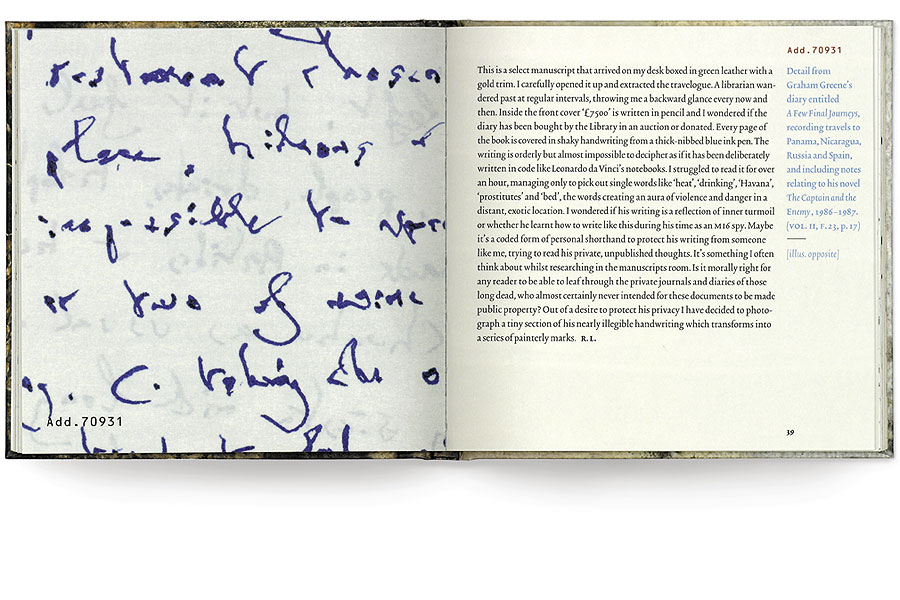 restaurant
place,
impossible to
or two of wine
C. taking the
Add.70931
Add.70931
This is a select manuscript that arrived on my desk boxed in green leather with a
gold trim. I carefully opened it up and extracted the travelogue. A librarian wan-
dered past at regular intervals, throwing me a backward glance every now and
then. Inside the front cover ‘£7500’ is written in pencil and I wondered if the
diary has been bought by the Library in an auction or donated. Every page of
the book is covered in shaky handwriting from a thick-nibbed blue ink pen. The
writing is orderly but almost impossible to decipher as if it has been deliberately
written in code like Leonardo da Vinci’s notebooks. I struggled to read it for over
an hour, managing only to pick out single words like ‘heat’, ‘drinking’, ‘Havana’,
‘prostitutes’ and ‘bed’, the words creating an aura of violence and danger in a
distant, exotic location. I wondered if his writing is a reflection of inner turmoil
or whether he learnt how to write like this during his time as an M16 spy. Maybe
it’s a coded form of personal shorthand to protect his writing from someone
like me, trying to read his private, unpublished thoughts. It’s something I often
think about whilst researching in the manuscripts room. Is it morally right for
any reader to be able to leaf through the private journals and diaries of those
long dead, who almost certainly never intended for these documents to be made
public property? Out of a desire to protect his privacy I have decided to photo-
graph a tiny section of his nearly illegible handwriting which transforms into
a series of painterly marks. R.L.
Detail from
Graham Greene’s
diary entitled
A Few Final Journeys,
recording travels to
Panama, Nicaragua,
Russia and Spain,
and including notes
relating to his novel
The Captain and the
Enemy, 1986–1987.
(VOL. II, F.23, p.17)
[illus. opposite]
39